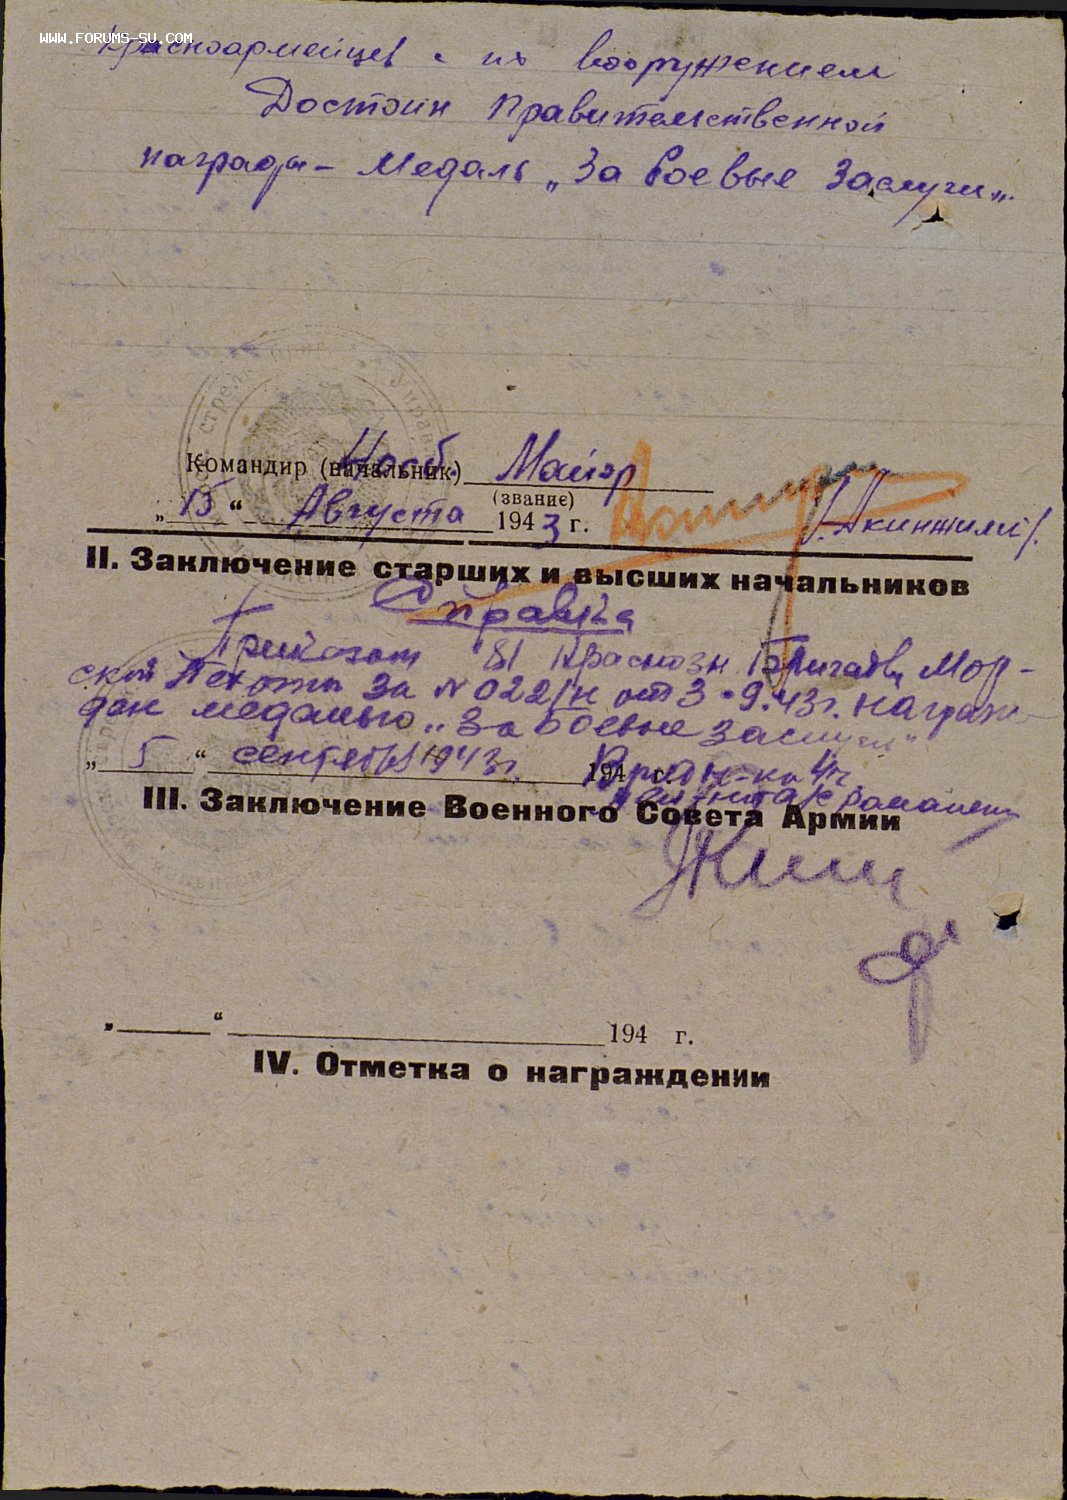 WWW.FORUMS-SU.COM
Красноармейцев с их вооружением
Достоин правительственной
награды – Медаль „За боевые заслуги„.
Командир (начальник) Майор
(звание)
„15“ Августа 1943 г.
II. Заключение старших и высших начальников
Справка
Приказом 81 Краснозн Бригады Мор-
ской Пехоты за № 022/н от 3.9.43г. награж-
ден медалью „За боевые заслуги“
„5“ сентября 1943г. 194 г.
III. Заключение Военного Совета Армии
„ “ 194 г.
IV. Отметка о награждении